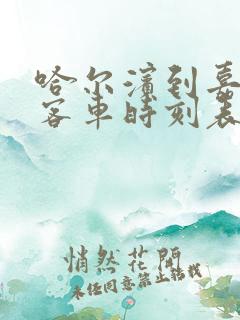 哈尔滨到嘉
客车时刻表
悄然花開
未经同意禁止转载